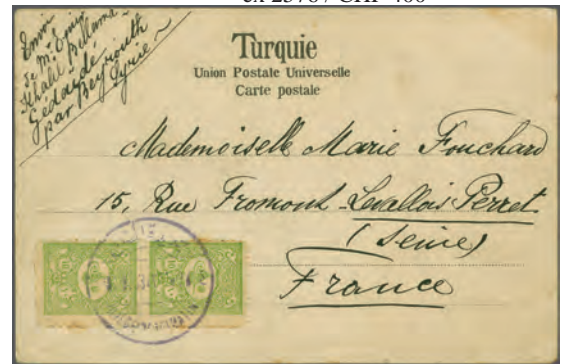 Envoi
de Mr
Khalil Bellama
Gédaydé
par Beyrouth
Syrie
Turquie
Union Postale Universelle
Carte postale
Mademoiselle Marie Fouchard
15, Rue Fromont Levallois Perret
(Seine)
France